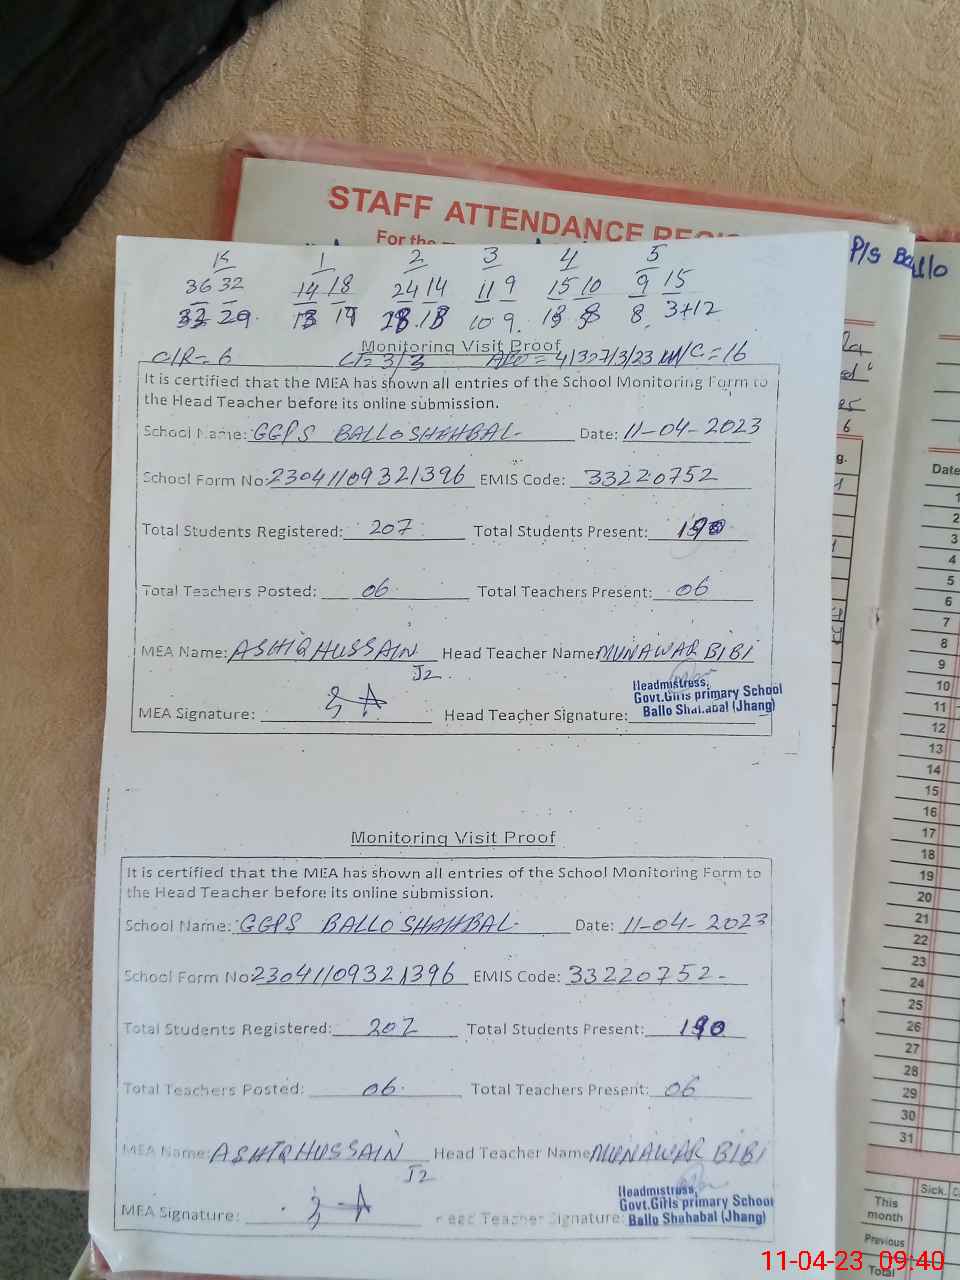 STAFF ATTENDANCE
For the
P/S Ballo
K 1 2 3 4 5
36 32 14 18 24 14 11 9 15 10 9 15
29 10 9 8 3+12
Monitoring Visit Proof
C/R=6 3/3 =16
It is certified that the MEA has shown all entries of the School Monitoring Form to
the Head Teacher before its online submission.
School Name: GGPS BALLO SHAHBAL Date: 11-04-2023
School Form No: 23041109321396 EMIS Code: 33220752
Total Students Registered: 207 Total Students Present: 190
Total Teachers Posted: 06 Total Teachers Present: 06
MEA Name: ASHIQ HUSSAIN Head Teacher Name MUNAWAR BIBI
J2
Headmistress,
Govt.Girls primary School
MEA Signature: Head Teacher Signature: Ballo Shahabal (Jhang)
Monitoring Visit Proof
It is certified that the MEA has shown all entries of the School Monitoring Form to
the Head Teacher before its online submission.
School Name: GGPS BALLO SHAHBAL Date: 11-04-2023
School Form No: 23041109321396 EMIS Code: 33220752
Total Students Registered: 207 Total Students Present: 190
Total Teachers Posted: 06 Total Teachers Present: 06
MEA Name: ASHIQ HUSSAIN Head Teacher Name MUNAWAR BIBI
J2
Headmistress,
Govt.Girls primary School
MEA Signature: Head Teacher Signature: Ballo Shahabal (Jhang)
Date
1
2
3
4
5
6
7
8
9
10
11
12
13
14
15
16
17
18
19
20
21
22
23
24
25
26
27
28
29
30
31
Sick.
This
month
Previous
Total
11-04-23 09:40